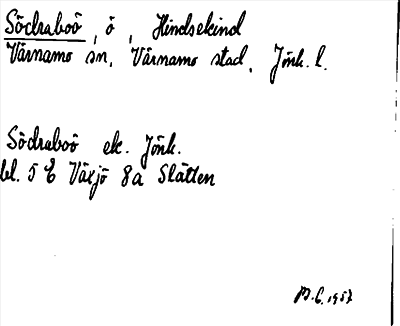 Södraboö, ö, Hindsekind
Värnamo sn, Värnamo stad, Jönk. l.
Södraboö ek. Jönk.
bl. 5 E Växjö 8a Slätten
B.C. 1957